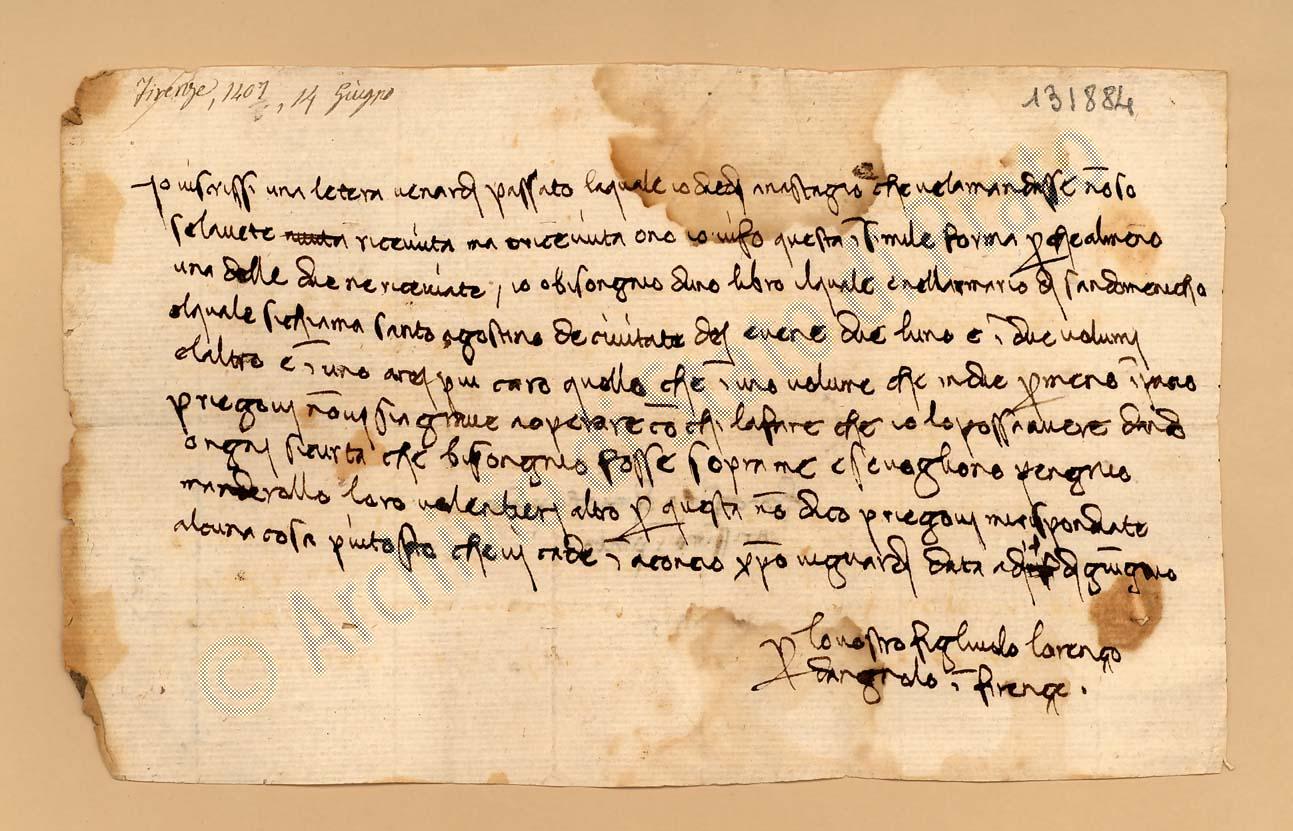 Firenze, 1407, 14 Giugno
131884
Io vi scrissi una letera venardj passato la quale io diedj a nastagio che vela mandasse nō so
se lavete ricevuta ma o ricevuta o no io vi fo questa ī simile forma p che almeno
una delle due ne riceviate, io o bisongnio duno libro il quale e nellarmario dj san domenicho
el quale si chiama santo agostino de civitate dej e vene due luno e ī due volumj
e laltro e ī uno arej piu caro quello che ī uno volume che in due p meno
priegovj nō vi sia grave a operare cō chi la fare che io lo possa avere dando
ongnj sicurta che bisongnio fosse sopra me e se vogliono pengnio
manderollo loro volentierj altro p questa nō dico priegovj mi rispondiate
alcuna cosa piu tosto che vj cade ī aconcio xp̄o vi guardj data adj dj giungnio
p lo vostro figliuolo lorenço
dangnolo ī firençe.
© Archivio di Stato di Prato